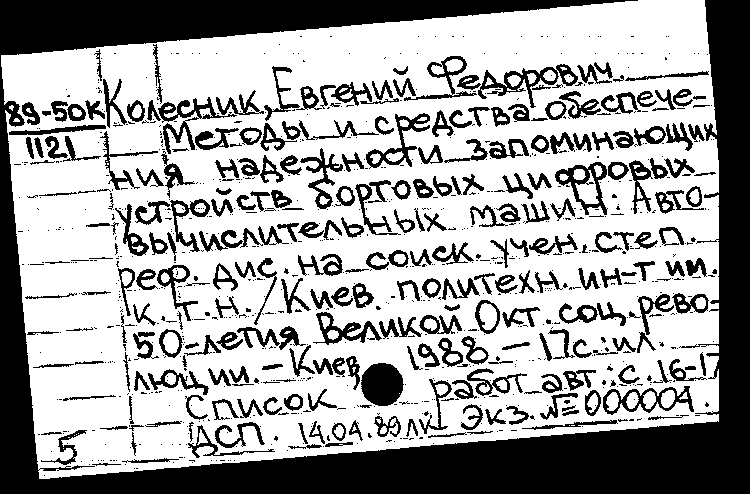 89-50К
1121
Колесник, Евгений Федорович.
Методы и средства обеспече-
ния надежности запоминающих
устройств бортовых цифровых
вычислительных машин: Авто-
реф. дис. на соиск. учен. степ.
к. т. н. / Киев. политехн. ин-т им.
50-летия Великой Окт. соц. рево-
люции. - Киев, 1988. - 17с.: ил.
Список работ авт.: с. 16-17
ДСП. 14.04.89 лк Экз. № 000004.
5